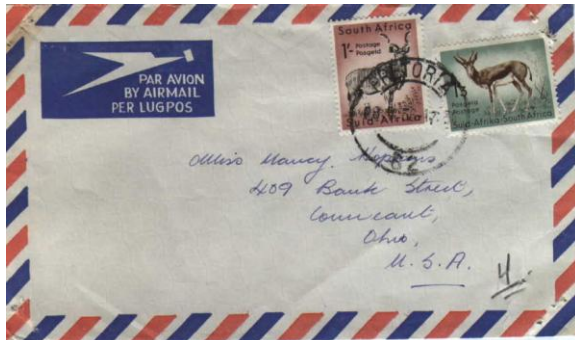 PAR AVION
BY AIRMAIL
PER LUGPOS
South Africa
1/- Postage
Posgeld
Suid-Afrika
Posgeld
Postage
Suid-Afrika South Africa
PRETORIA
Miss Nancy Hopkins
409 Bank Street,
Conneaut,
Ohio,
U.S.A.
4